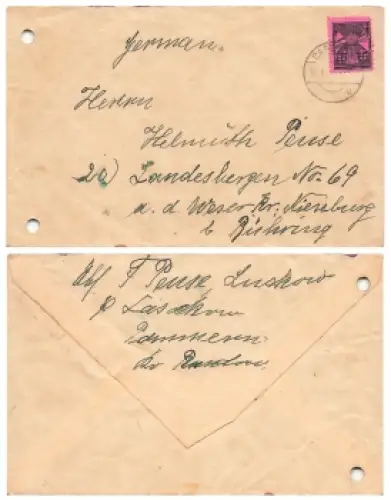 German.
Herrn
Helmuth Peuse
20) Landesbergen No. 69
a. d Weser Kr. Nienburg
b Bühring
Abs. F Peuse Luskow
Pommern
Kr